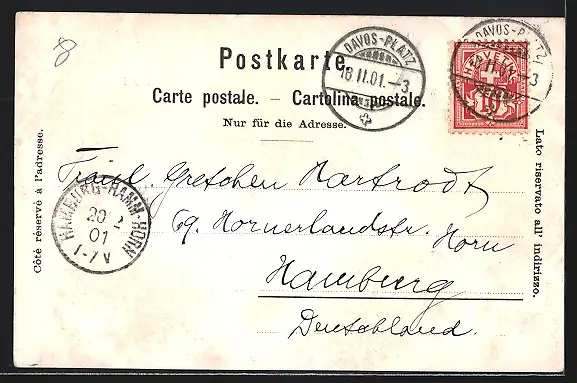 8
Postkarte.
Carte postale. – Cartolina postale.
Nur für die Adresse.
DAVOS-PLATZ
18.II.01.–3
DAVOS-PLATZ
HELVETIA
10
Côté réservé à l'adresse.
Lato riservato all' indirizzo.
Fräul. Gretchen Martrodt
69. Hornerlandstr. Horn
Hamburg
Deutschland.
HAMBURG-HAMM-HORN
20 2
01
1-7V